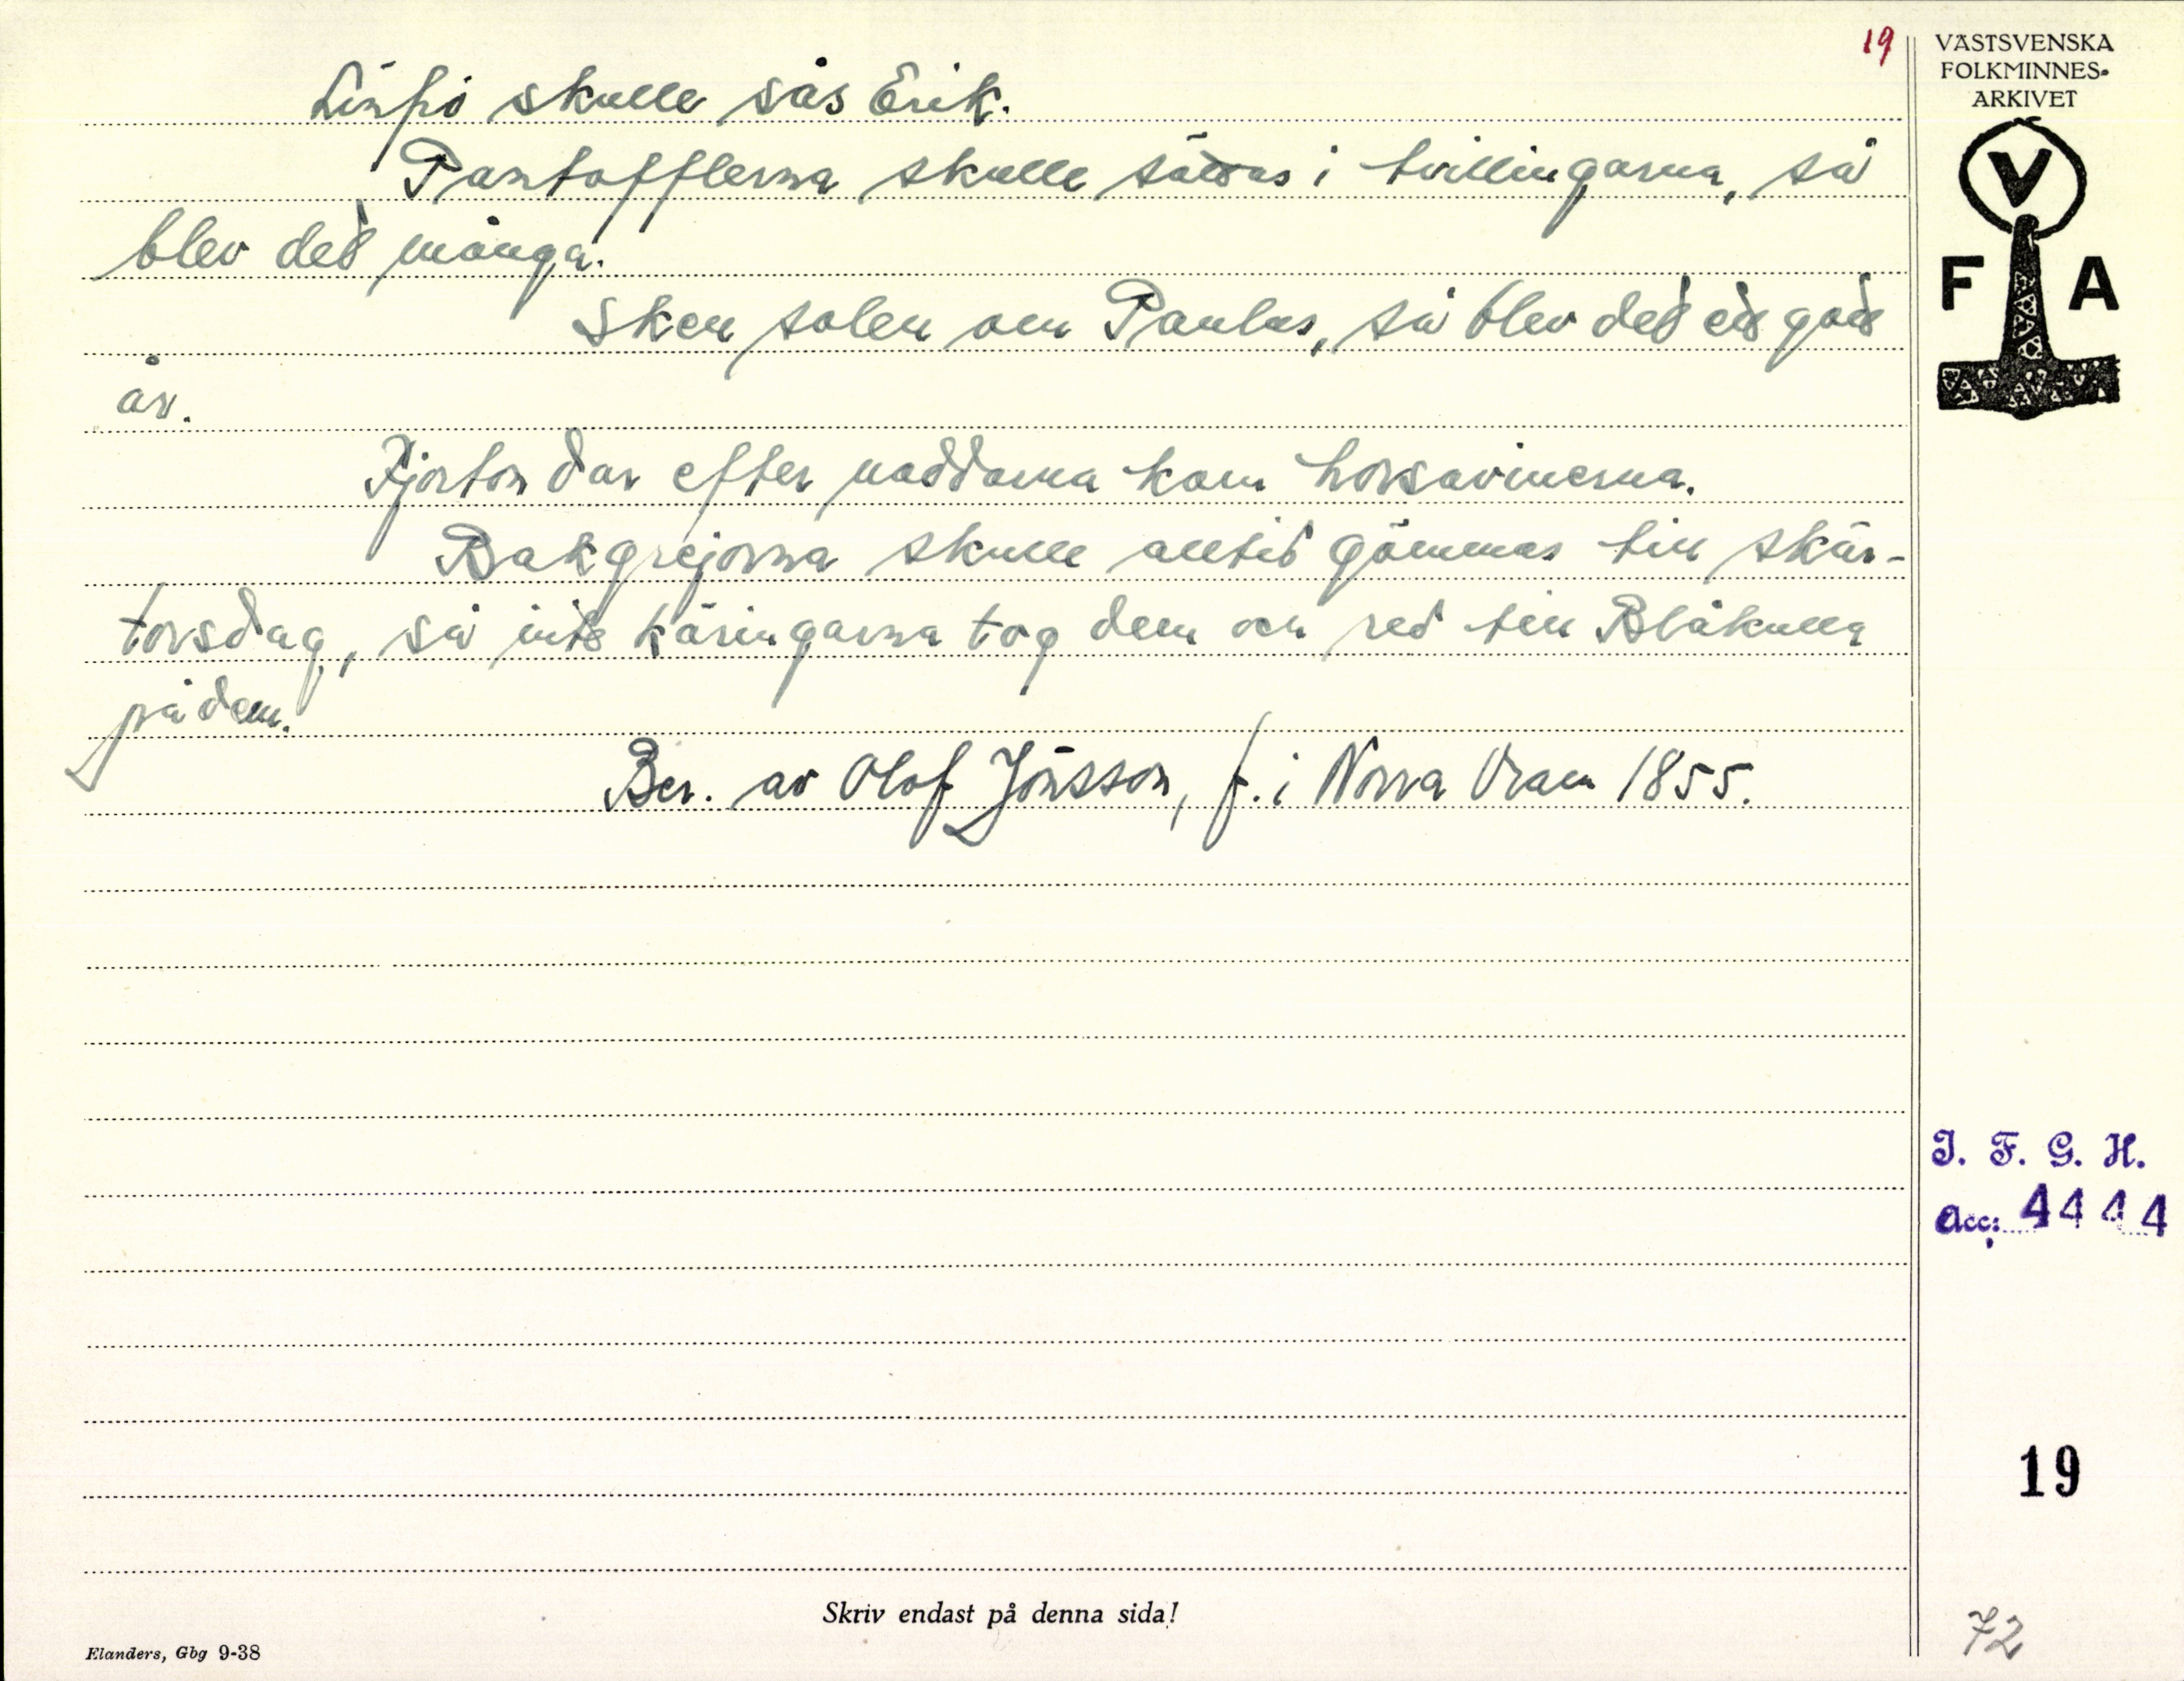 19
VÄSTSVENSKA
FOLKMINNES-
ARKIVET
V
F A
Linfrö skulle sås Erik.
Pantofflerna skulle sättas i tvillingarna, så
blev det många.
Sken solen om Paulus, så blev det ett gott
år.
Fjorton dar efter naddarna kom horsavinerna.
Bakgrejorna skulle alltid gömmas till skär-
torsdag, så inte käringarna tog dem och red till Blåkulla
på dem.
Ber. av Olof Jönsson, f. i Norra Vram 1855.
I. F. G. H.
Acc: 4444
19
72
Skriv endast på denna sida!
Elanders, Gbg 9-38